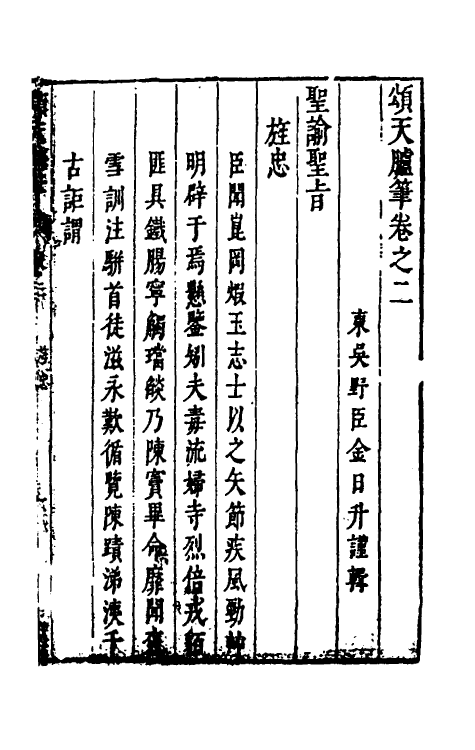 頌天臚筆卷之二
東吳野臣金日升謹輯
聖諭聖旨
旌忠
臣聞崑岡煆玉志士以之矢節疾風勁
明辟于焉懸鑒矧夫毒流婦寺烈倍戎
匪具鐵腸寧觸璫燄乃陳竇畢命靡聞
雪訓注駢首徒滋永歎循覽陳蹟涕浹千
古詎謂